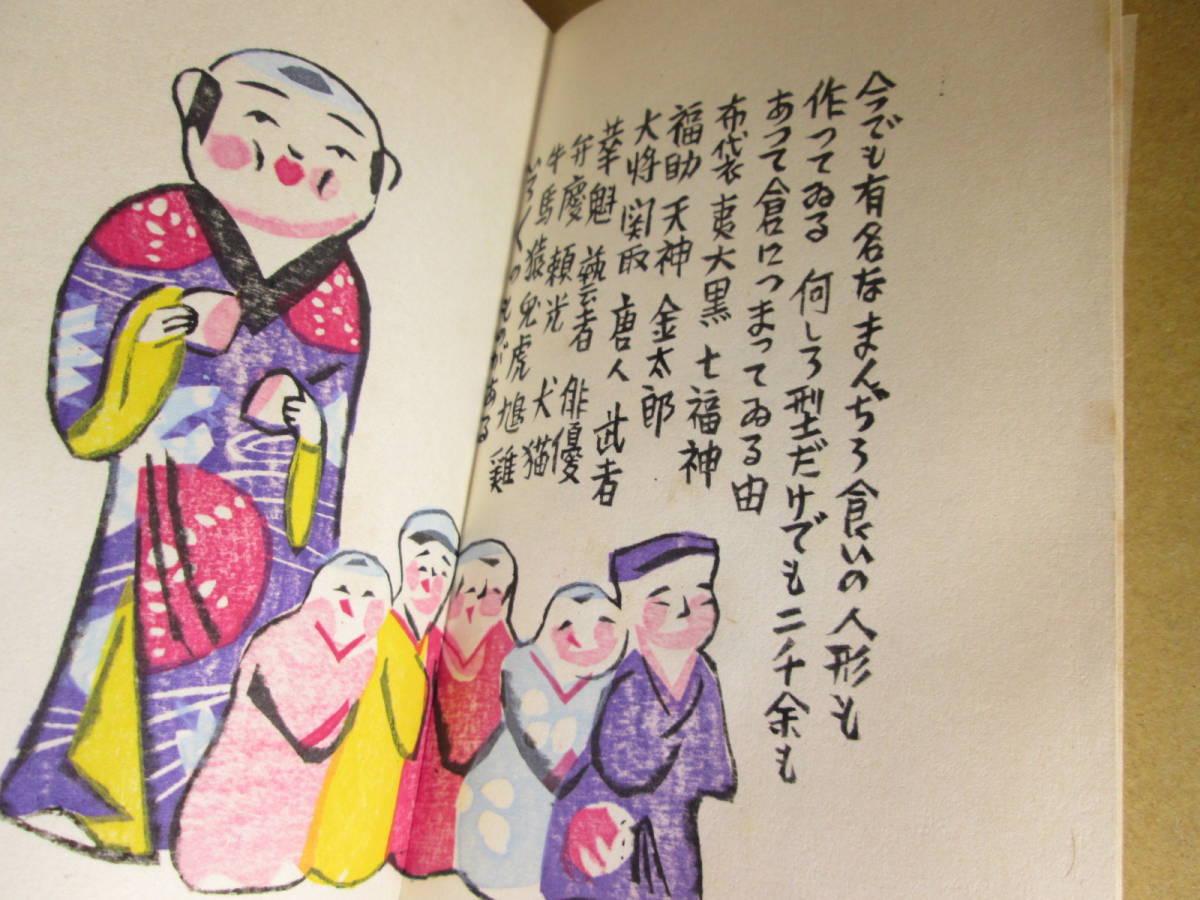 今でも有名なまんぢう食いの人形も
作ってゐる 何しろ型だけでも二千余も
あって倉につまってゐる由
布袋 夷大黒 七福神
福助 天神 金太郎
大将 関取 唐人 武者
華魁 藝者 俳優
弁慶 頼光 犬猫
牛馬猿兎虎鳩雞
いろ〱のものがある